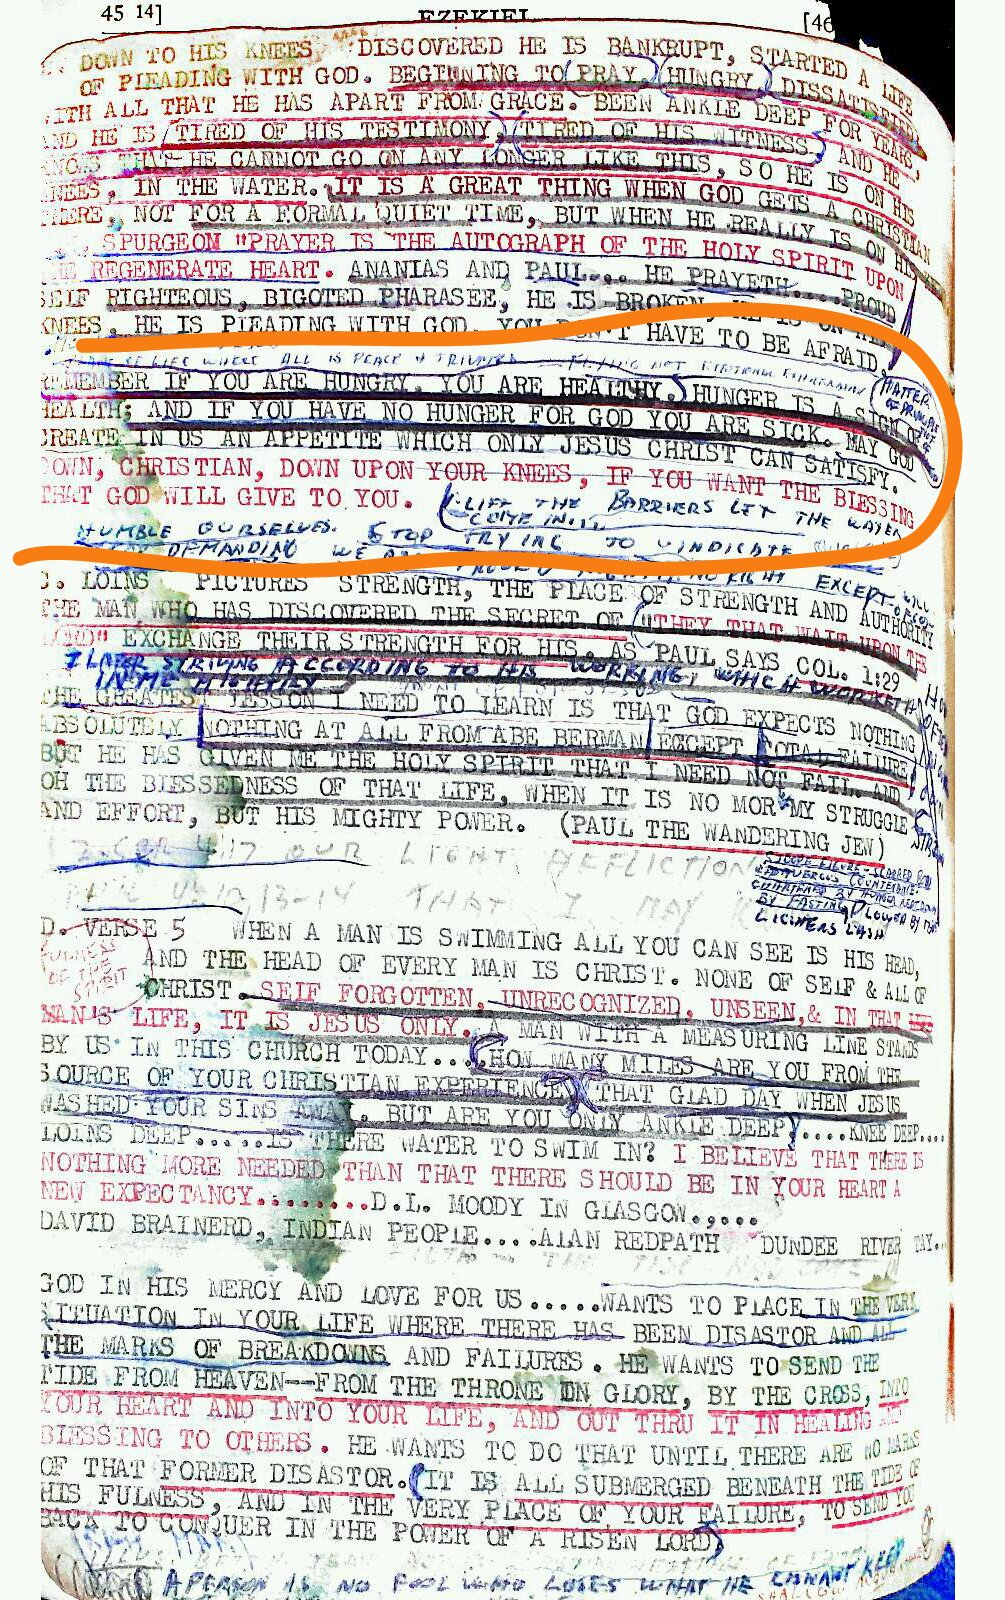 45 14]
EZEKIEL
[46
DOWN TO HIS KNEES DISCOVERED HE IS BANKRUPT, STARTED A LIFE
OF PLEADING WITH GOD. BEGINNING TO PRAY, HUNGRY, DISSATISFIED
ITH ALL THAT HE HAS APART FROM GRACE. BEEN ANKLE DEEP FOR YEARS,
ND HE IS TIRED OF HIS TESTIMONY, TIRED OF HIS WITNESS, AND HE
THAT HE CANNOT GO ON ANY LONGER LIKE THIS, SO HE IS ON HIS
NEES, IN THE WATER. IT IS A GREAT THING WHEN GOD GETS A CHRISTIAN
HERE, NOT FOR A FORMAL QUIET TIME, BUT WHEN HE REALLY IS ON HIS
SPURGEON "PRAYER IS THE AUTOGRAPH OF THE HOLY SPIRIT UPON
HE REGENERATE HEART. ANANIAS AND PAUL... HE PRAYETH....PROUD
SELF RIGHTEOUS, BIGOTED PHARASEE, HE IS BROKEN, HE IS ON HIS
KNEES, HE IS PLEADING WITH GOD. YOU DON'T HAVE TO BE AFRAID.
OF LIFE WHERE ALL IS PEACE & TRIUMPH
MATTER
REMEMBER IF YOU ARE HUNGRY, YOU ARE HEALTHY. HUNGER IS A SIGN OF
HEALTH; AND IF YOU HAVE NO HUNGER FOR GOD YOU ARE SICK. MAY GOD
CREATE IN US AN APPETITE WHICH ONLY JESUS CHRIST CAN SATISFY.
DOWN, CHRISTIAN, DOWN UPON YOUR KNEES, IF YOU WANT THE BLESSING
THAT GOD WILL GIVE TO YOU.
LIFT THE BARRIERS LET THE WATER
COME IN....
HUMBLE OURSELVES. STOP TRYING TO VINDICATE
DEMANDING
NO RIGHT EXCEPT
C. LOINS PICTURES STRENGTH, THE PLACE OF STRENGTH AND AUTHORITY
THE MAN WHO HAS DISCOVERED THE SECRET OF "THEY THAT WAIT UPON THE
LORD" EXCHANGE THEIR STRENGTH FOR HIS. AS PAUL SAYS COL. 1:29
I LATER STRIVING ACCORDING TO HIS WORKING, WHICH WORKETH
IN ME MIGHTILY
THE GREATEST LESSON I NEED TO LEARN IS THAT GOD EXPECTS NOTHING
ABSOLUTELY NOTHING AT ALL FROM ABE BERMAN EXCEPT TOTAL FAILURE
BUT HE HAS GIVEN ME THE HOLY SPIRIT THAT I NEED NOT FAIL. AND
OH THE BLESSEDNESS OF THAT LIFE, WHEN IT IS NO MOR MY STRUGGLE
AND EFFORT, BUT HIS MIGHTY POWER. (PAUL THE WANDERING JEW)
2 COR 4:17 OUR LIGHT AFFLICTION
THAT I MAY
COUNTENANCE
BY FASTING PLOWED BY THE
LICTNERS LASH
D. VERSE 5 WHEN A MAN IS SWIMMING ALL YOU CAN SEE IS HIS HEAD,
AND THE HEAD OF EVERY MAN IS CHRIST. NONE OF SELF & ALL OF
FULNESS
OF THE
SPIRIT
CHRIST. SELF FORGOTTEN, UNRECOGNIZED, UNSEEN,& IN THAT
MAN'S LIFE, IT IS JESUS ONLY. A MAN WITH A MEASURING LINE STANDS
BY US IN THIS CHURCH TODAY....HOW MANY MILES ARE YOU FROM THE
SOURCE OF YOUR CHRISTIAN EXPERIENCE THAT GLAD DAY WHEN JESUS
WASHED YOUR SINS AWAY, BUT ARE YOU ONLY ANKLE DEEP?....KNEE DEEP....
LOINS DEEP......IS THERE WATER TO SWIM IN? I BELIEVE THAT THERE IS
NOTHING MORE NEEDED THAN THAT THERE SHOULD BE IN YOUR HEART A
NEW EXPECTANCY.........D.L. MOODY IN GLASGOW......
DAVID BRAINERD, INDIAN PEOPLE....ALAN REDPATH DUNDEE RIVER TAY..
GOD IN HIS MERCY AND LOVE FOR US.....WANTS TO PLACE IN THE VERY
SITUATION IN YOUR LIFE WHERE THERE HAS BEEN DISASTOR AND ALL
THE MARKS OF BREAKDOWNS AND FAILURES. HE WANTS TO SEND THE
TIDE FROM HEAVEN--FROM THE THRONE IN GLORY, BY THE CROSS, INTO
YOUR HEART AND INTO YOUR LIFE, AND OUT THRU IT IN HEALING AND
BLESSING TO OTHERS. HE WANTS TO DO THAT UNTIL THERE ARE NO MARKS
OF THAT FORMER DISASTOR. (IT IS ALL SUBMERGED BENEATH THE TIDE OF
HIS FULNESS, AND IN THE VERY PLACE OF YOUR FAILURE, TO SEND YOU
BACK TO CONQUER IN THE POWER OF A RISEN LORD)
A PERSON IS NO FOOL WHO LOSES WHAT HE CANNOT KEEP